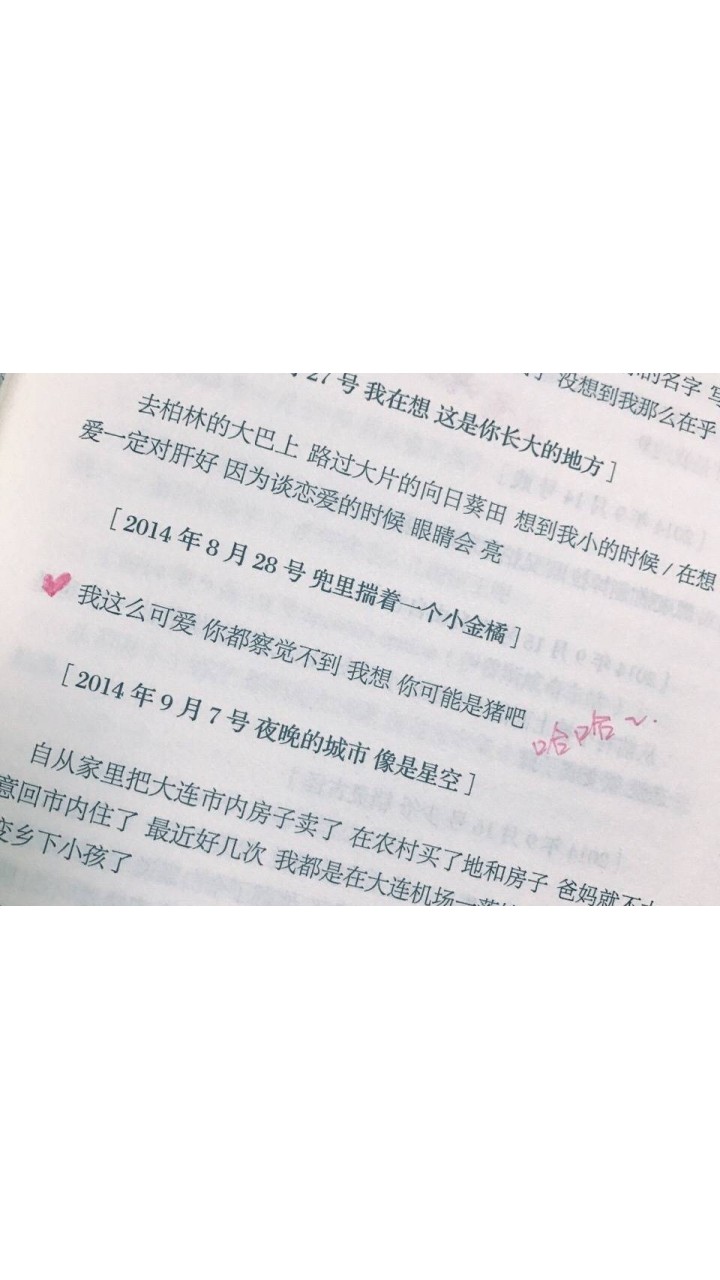 的名字 写
没想到我那么在乎
27号 我在想 这是你长大的地方]
去柏林的大巴上 路过大片的向日葵田 想到我小的时候/在想
爱一定对肝好 因为谈恋爱的时候 眼睛会 亮
[2014年8月28号 兜里揣着一个小金橘]
我这么可爱 你都察觉不到 我想 你可能是猪吧
哈哈~.
[2014年9月7号 夜晚的城市 像是星空]
自从家里把大连市内房子卖了 在农村买了地和房子 爸妈就不
意回市内住了 最近好几次 我都是在大连机场一落
变乡下小孩了